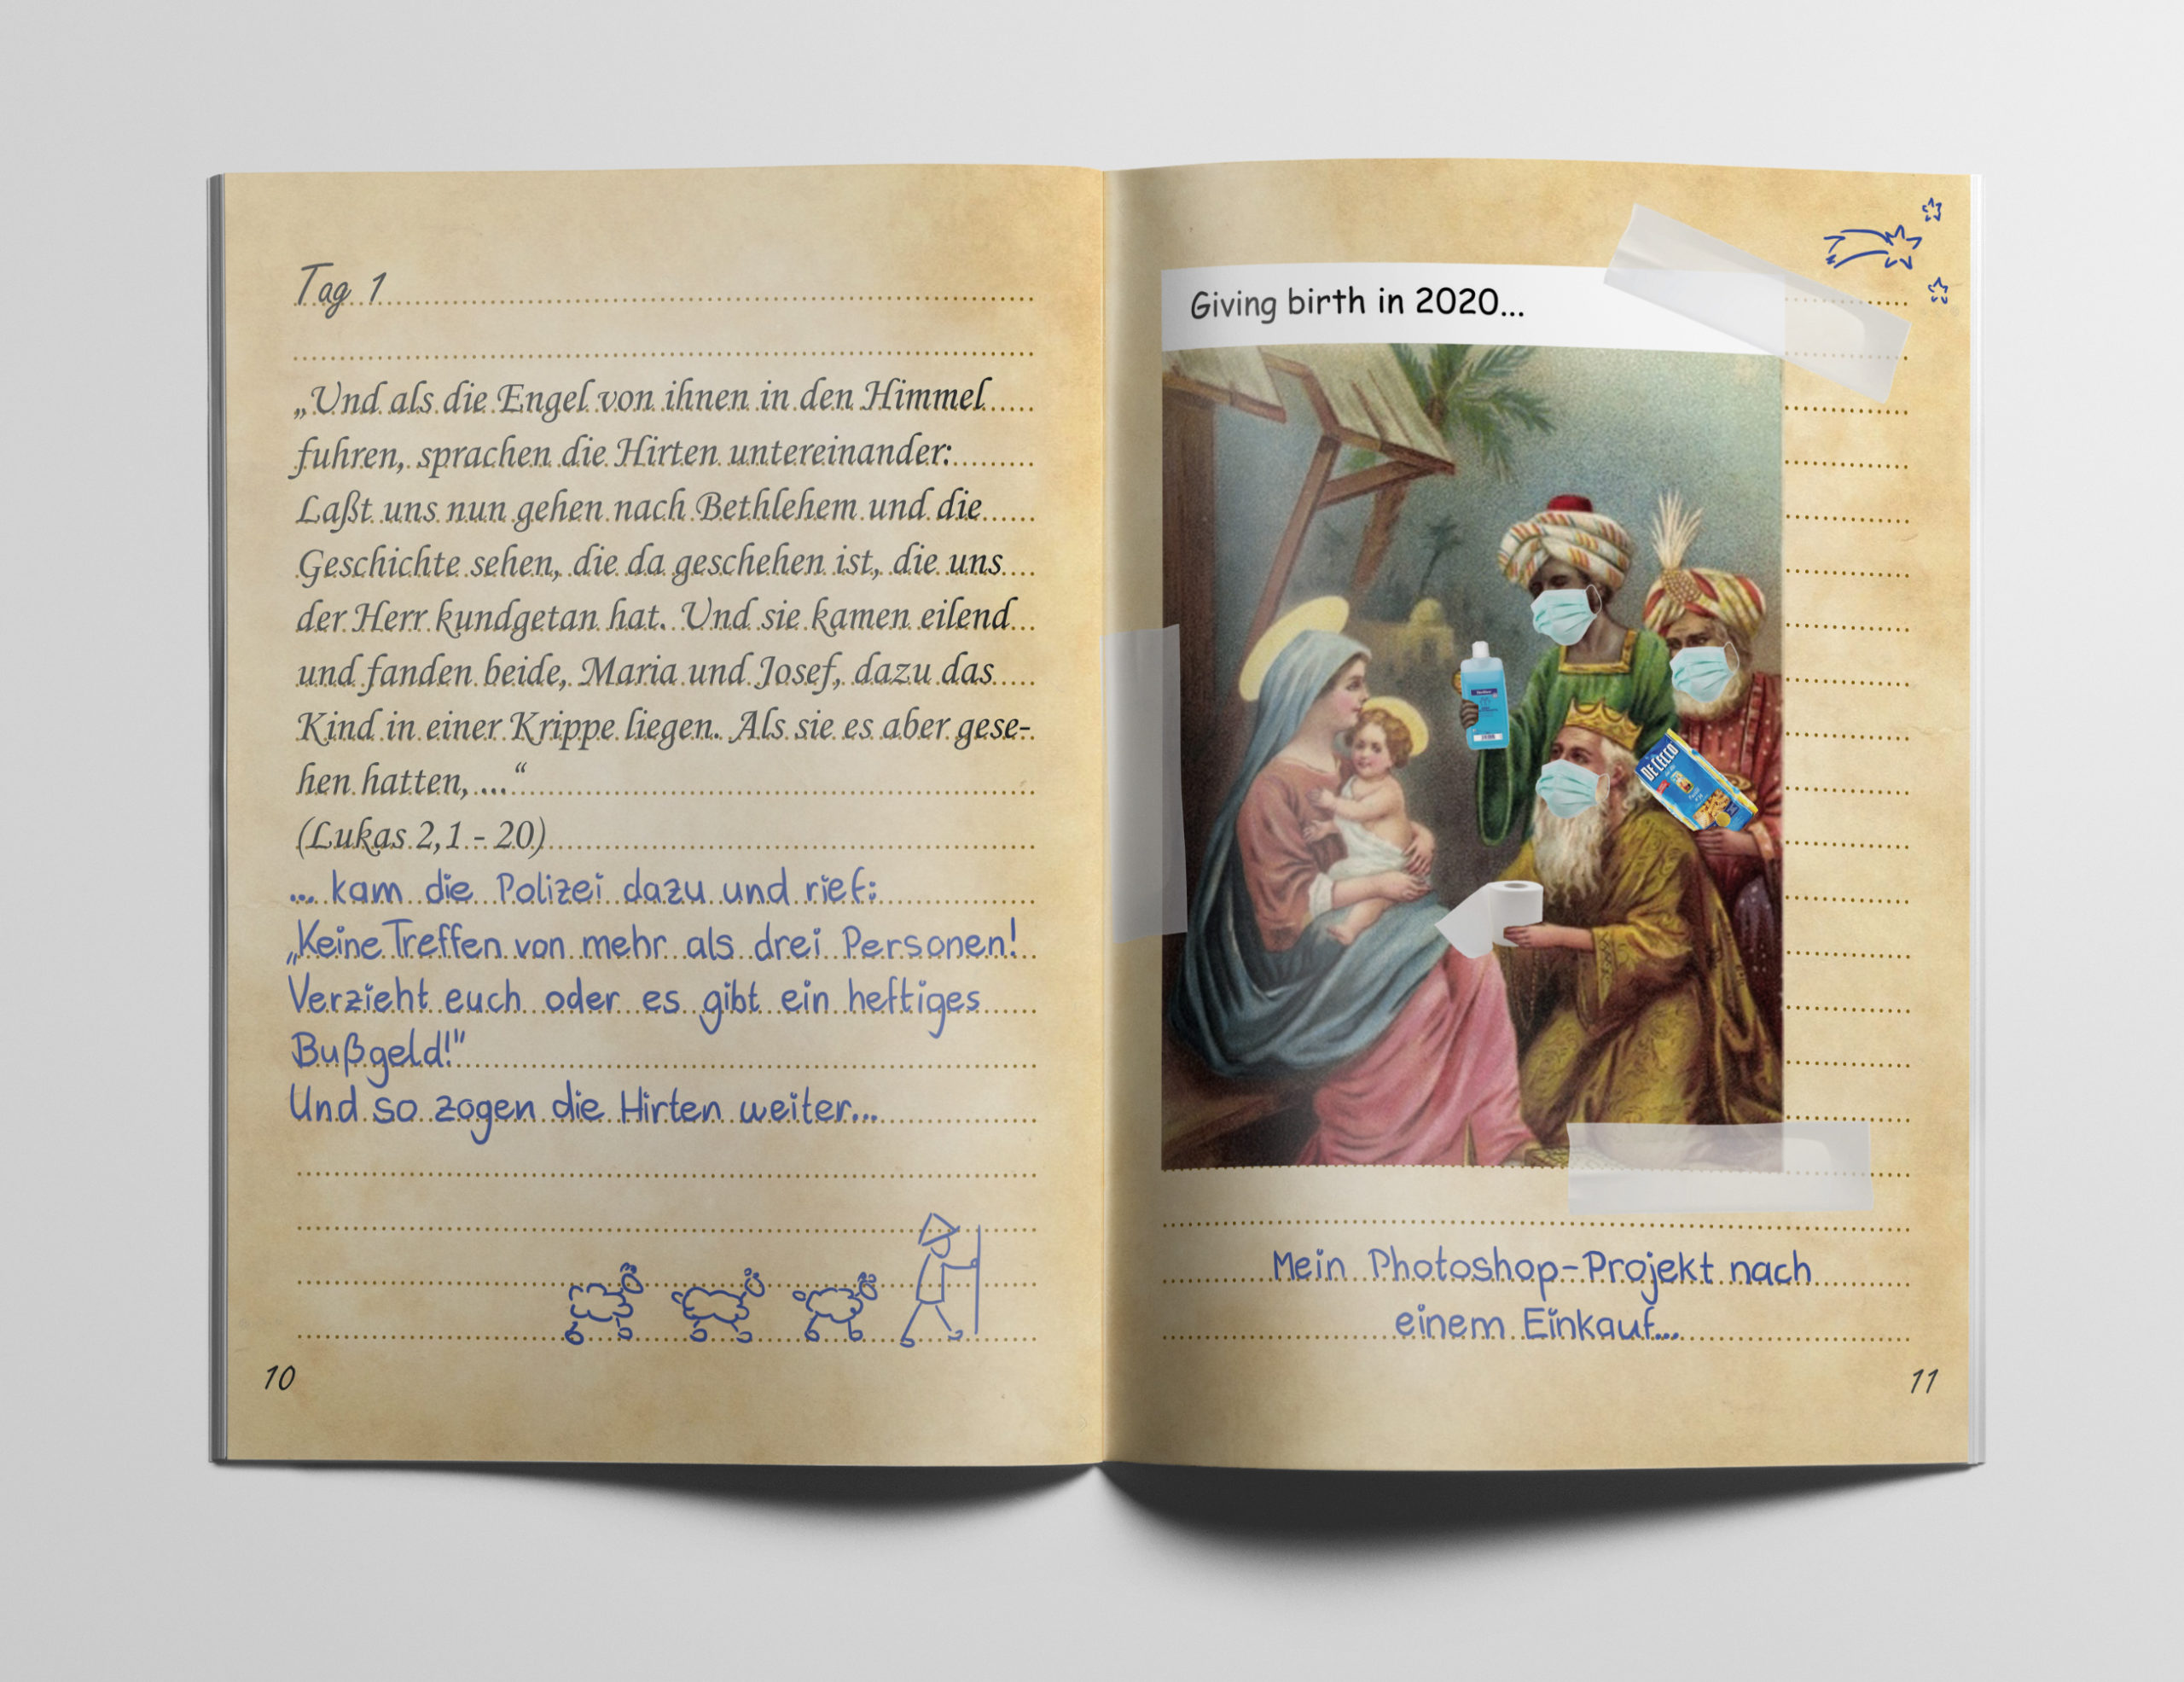 Tag 1
„Und als die Engel von ihnen in den Himmel
fuhren, sprachen die Hirten untereinander:
Laßt uns nun gehen nach Bethlehem und die
Geschichte sehen, die da geschehen ist, die uns
der Herr kundgetan hat. Und sie kamen eilend
und fanden beide, Maria und Josef, dazu das
Kind in einer Krippe liegen. Als sie es aber gese-
hen hatten, ...“
(Lukas 2,1 - 20)
... kam die Polizei dazu und rief:
„Keine Treffen von mehr als drei Personen!
Verzieht euch oder es gibt ein heftiges
Bußgeld!"
Und so zogen die Hirten weiter...
10
Giving birth in 2020...
DE CECCO
Mein Photoshop-Projekt nach
einem Einkauf...
11